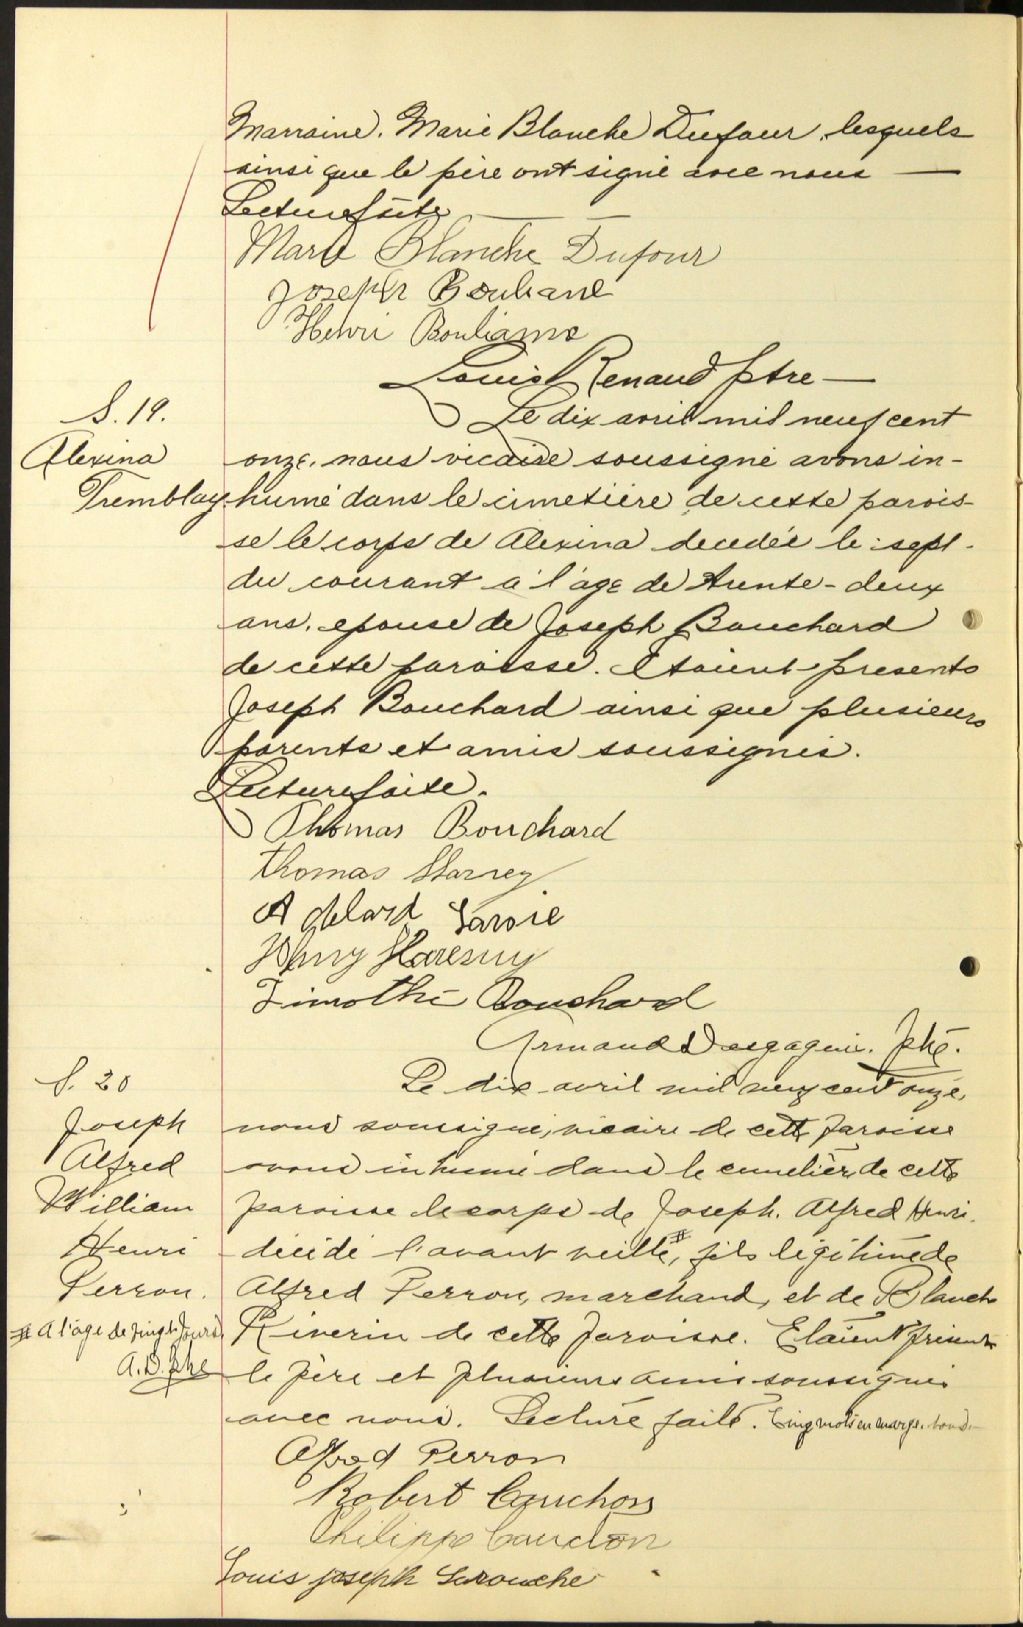 Marraine. Marie Blanche Dufour, lesquels
ainsi que le père ont signé avec nous —
Lecture faite
Marie Blanche Dufour
Joseph Bouliane
Henri Bouliane
Louis Renaud Ptre —
S. 19.
Alexina
Tremblay
Le dix avril mil neuf cent
onze, nous vicaire soussigné avons in-
humé dans le cimetière de cette parois-
se le corps de Alexina decedée le sept
du courant a l'age de trente-deux
ans. epouse de Joseph Bouchard
de cette paroisse. Etaient presents
Joseph Bouchard ainsi que plusieurs
parents et amis soussignés.
Lecture faite.
Thomas Bouchard
Thomas Harvey
Adelard Savoie
Timothé Bouchard
Armand Desgagné. Ptre.
S. 20
Joseph
Alfred
William
Henri
Perron.
# A l'age de vingt jours
A.D. Ptre
Le dix avril mil neuf cent onze,
nous soussigné, vicaire de cette paroisse
avons inhumé dans le cimetière de cette
paroisse le corps de Joseph. Alfred Henri.
décédé l'avant veille #, fils légitime de
Alfred Perron, marchand, et de Blanche
Riverin de cette paroisse. Etaient présents
le père et plusieurs amis soussignés
avec nous. Lecture faite. Cinq mots en marge. bons.
Alfred Perron
Robert Cauchon
Philippe Cauchon
Louis joseph Larouche